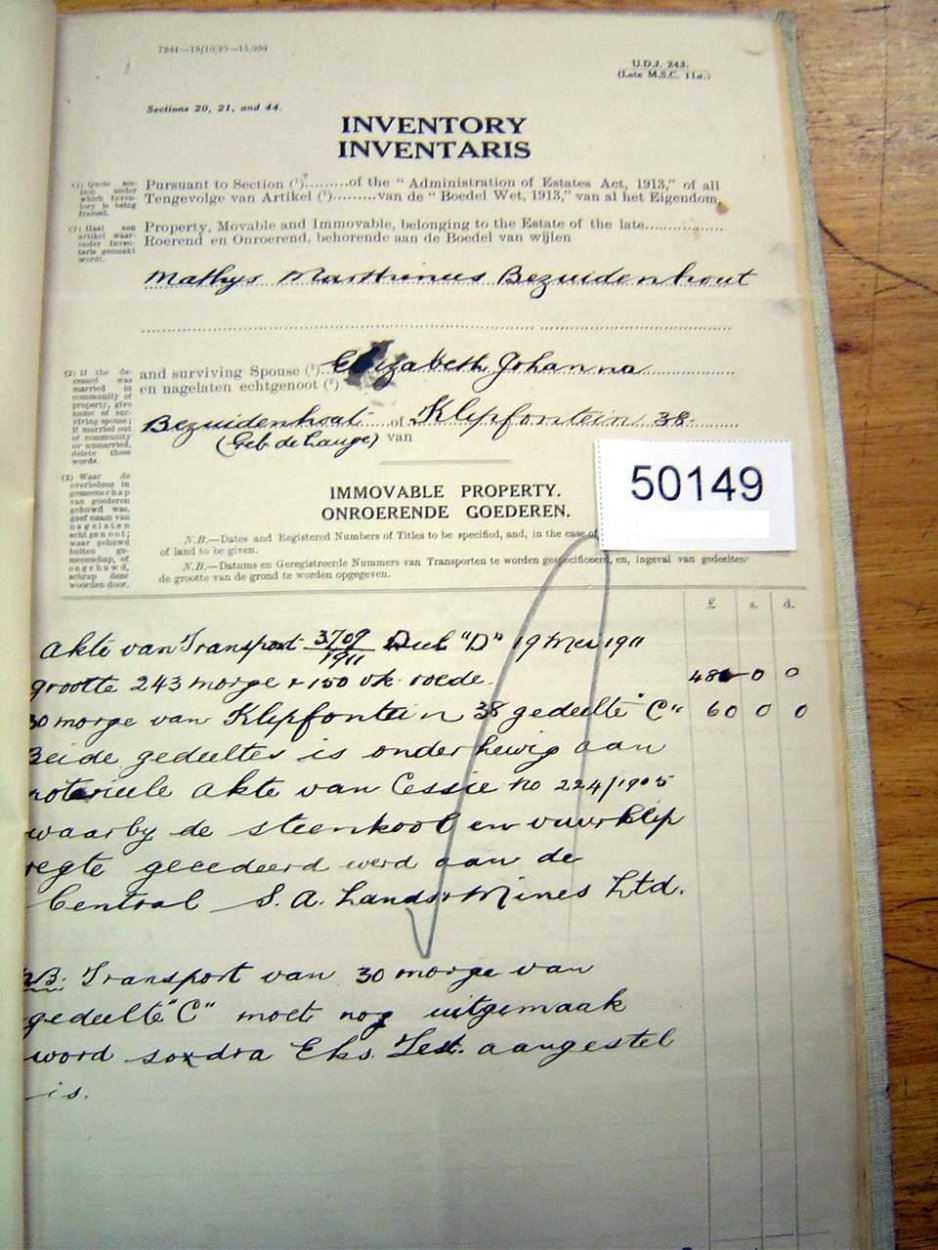 7264—19/10/25—15,000
U.D.J. 243.
(Late M.S.C. 11a.)
Sections 20, 21, and 44.
INVENTORY
INVENTARIS
(1) Quote section under which Inventory is being framed.
(1) Haal aan artikel waaronder Inventaris gemaakt wordt.
Pursuant to Section (1).........of the "Administration of Estates Act, 1913," of all
Tengevolge van Artikel (1).........van de "Boedel Wet, 1913," van al het Eigendom,
Property, Movable and Immovable, belonging to the Estate of the late
Roerend en Onroerend, behorende aan de Boedel van wijlen
Mathys Marthinus Bezuidenhout
(2) If the deceased was married in community of property, give name of surviving spouse; if married out of community or unmarried, delete these words.
and surviving Spouse (2) Elizabeth Johanna
en nagelaten echtgenoot (2)
Bezuidenhout of Klipfontein 38.
(Geb de Lange) van
50149
(2) Waar de overledene in gemeenschap van goederen gehuwd was, geef naam van nagelaten echtgenoot; waar gehuwd buiten gemeenschap, of ongehuwd, schrap deze woorden door.
IMMOVABLE PROPERTY.
ONROERENDE GOEDEREN.
N.B.—Dates and Registered Numbers of Titles to be specified, and, in the case of
of land to be given.
N.B.—Datums en Geregistreerde Nummers van Transporten te worden gespecificeerd, en, ingeval van gedeelten
de grootte van de grond te worden opgegeven.
£ s. d.
Akte van Transport 3709/1911 "D" 19 Mei 1911
grootte 243 morge + 150 vk. roede. 0 0
30 morge van Klipfontein 38 gedeelte "C" 60 0 0
Beide gedeeltes is onderhewig aan
notarieele akte van Cessie no 224/1905
waarby de steenkool en vuurklip
regte gecedeerd werd aan de
Central S.A. Lands & Mines Ltd.
NB: Transport van 30 morge van
gedeelte "C" moet nog uitgemaak
word soxdra Eks. Test. aangestel
is.